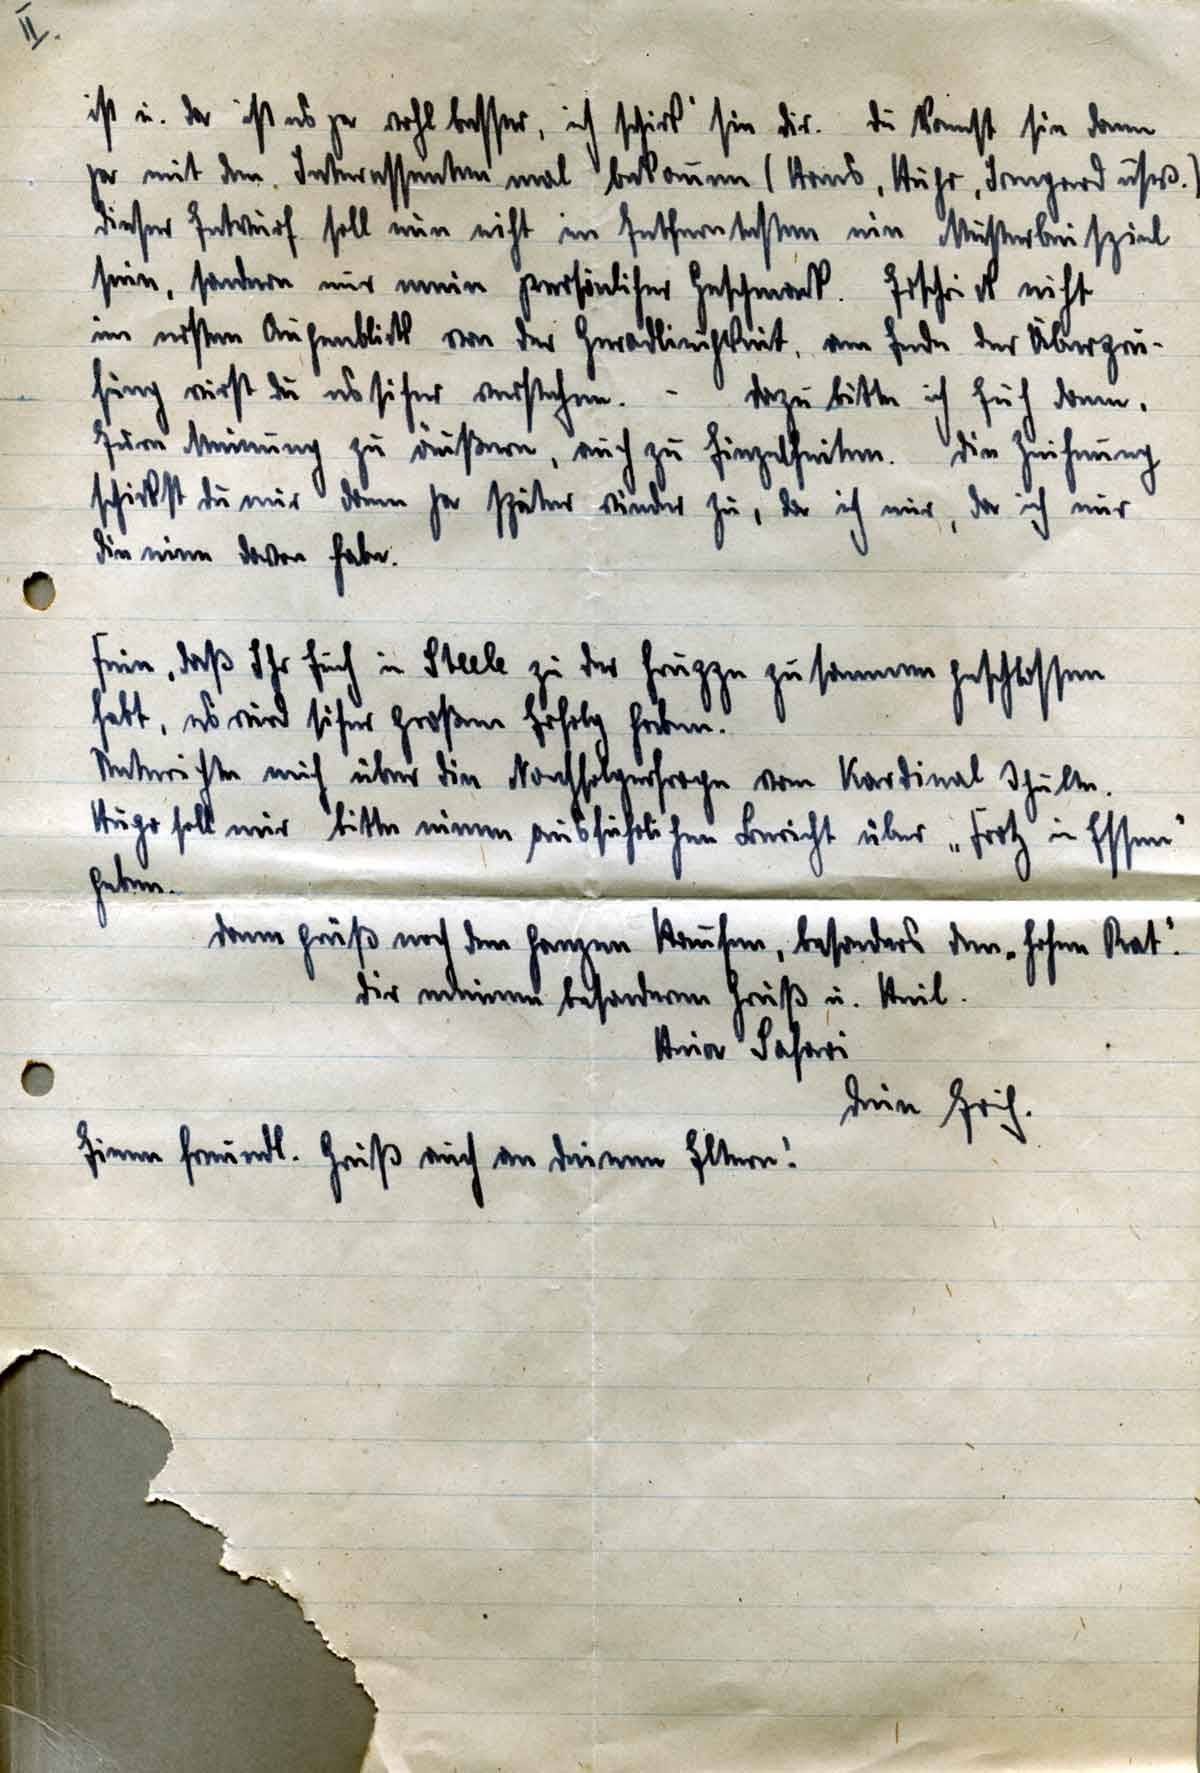 II.
ist u. da ist es ja wohl besser, ich schick' sie dir. Du kannst sie dann
ja mit den Interessenten mal bekaun (Hans, Hugo, Irmgard usw.)
Dieser Entwurf soll nun nicht im Entferntesten ein Musterbeispiel
sein, sondern nur mein persönlicher Geschmack. Erschrick nicht
im ersten Augenblick von der Geradlinigkeit, am Ende der Überprü-
fung wirst du es sicher verstehen. - Dazu bitte ich Euch dann,
Eure Meinung zu äußern, auch zu Einzelheiten. Die Zeichnung
schickst du mir dann ja später wieder zu, da ich nur, da ich nur
die eine davon habe.
Fein, daß Ihr Euch in Steele zu der Gruppe zusammen geschlossen
habt, es wird sicher großen Erfolg haben.
Unterrichte mich über die Nachfolgerfrage vom Kardinal Schulte.
Hugo soll mir bitte einen ausführlichen Bericht über „Trotz in Essen"
geben.
Dann grüß noch den ganzen Haufen, besonders den „hohen Rat".
Dir meinen besonderen Gruß u. Heil.
Heia Safari
Dein Erich.
Einen freundl. Gruß auch an deinen Eltern!